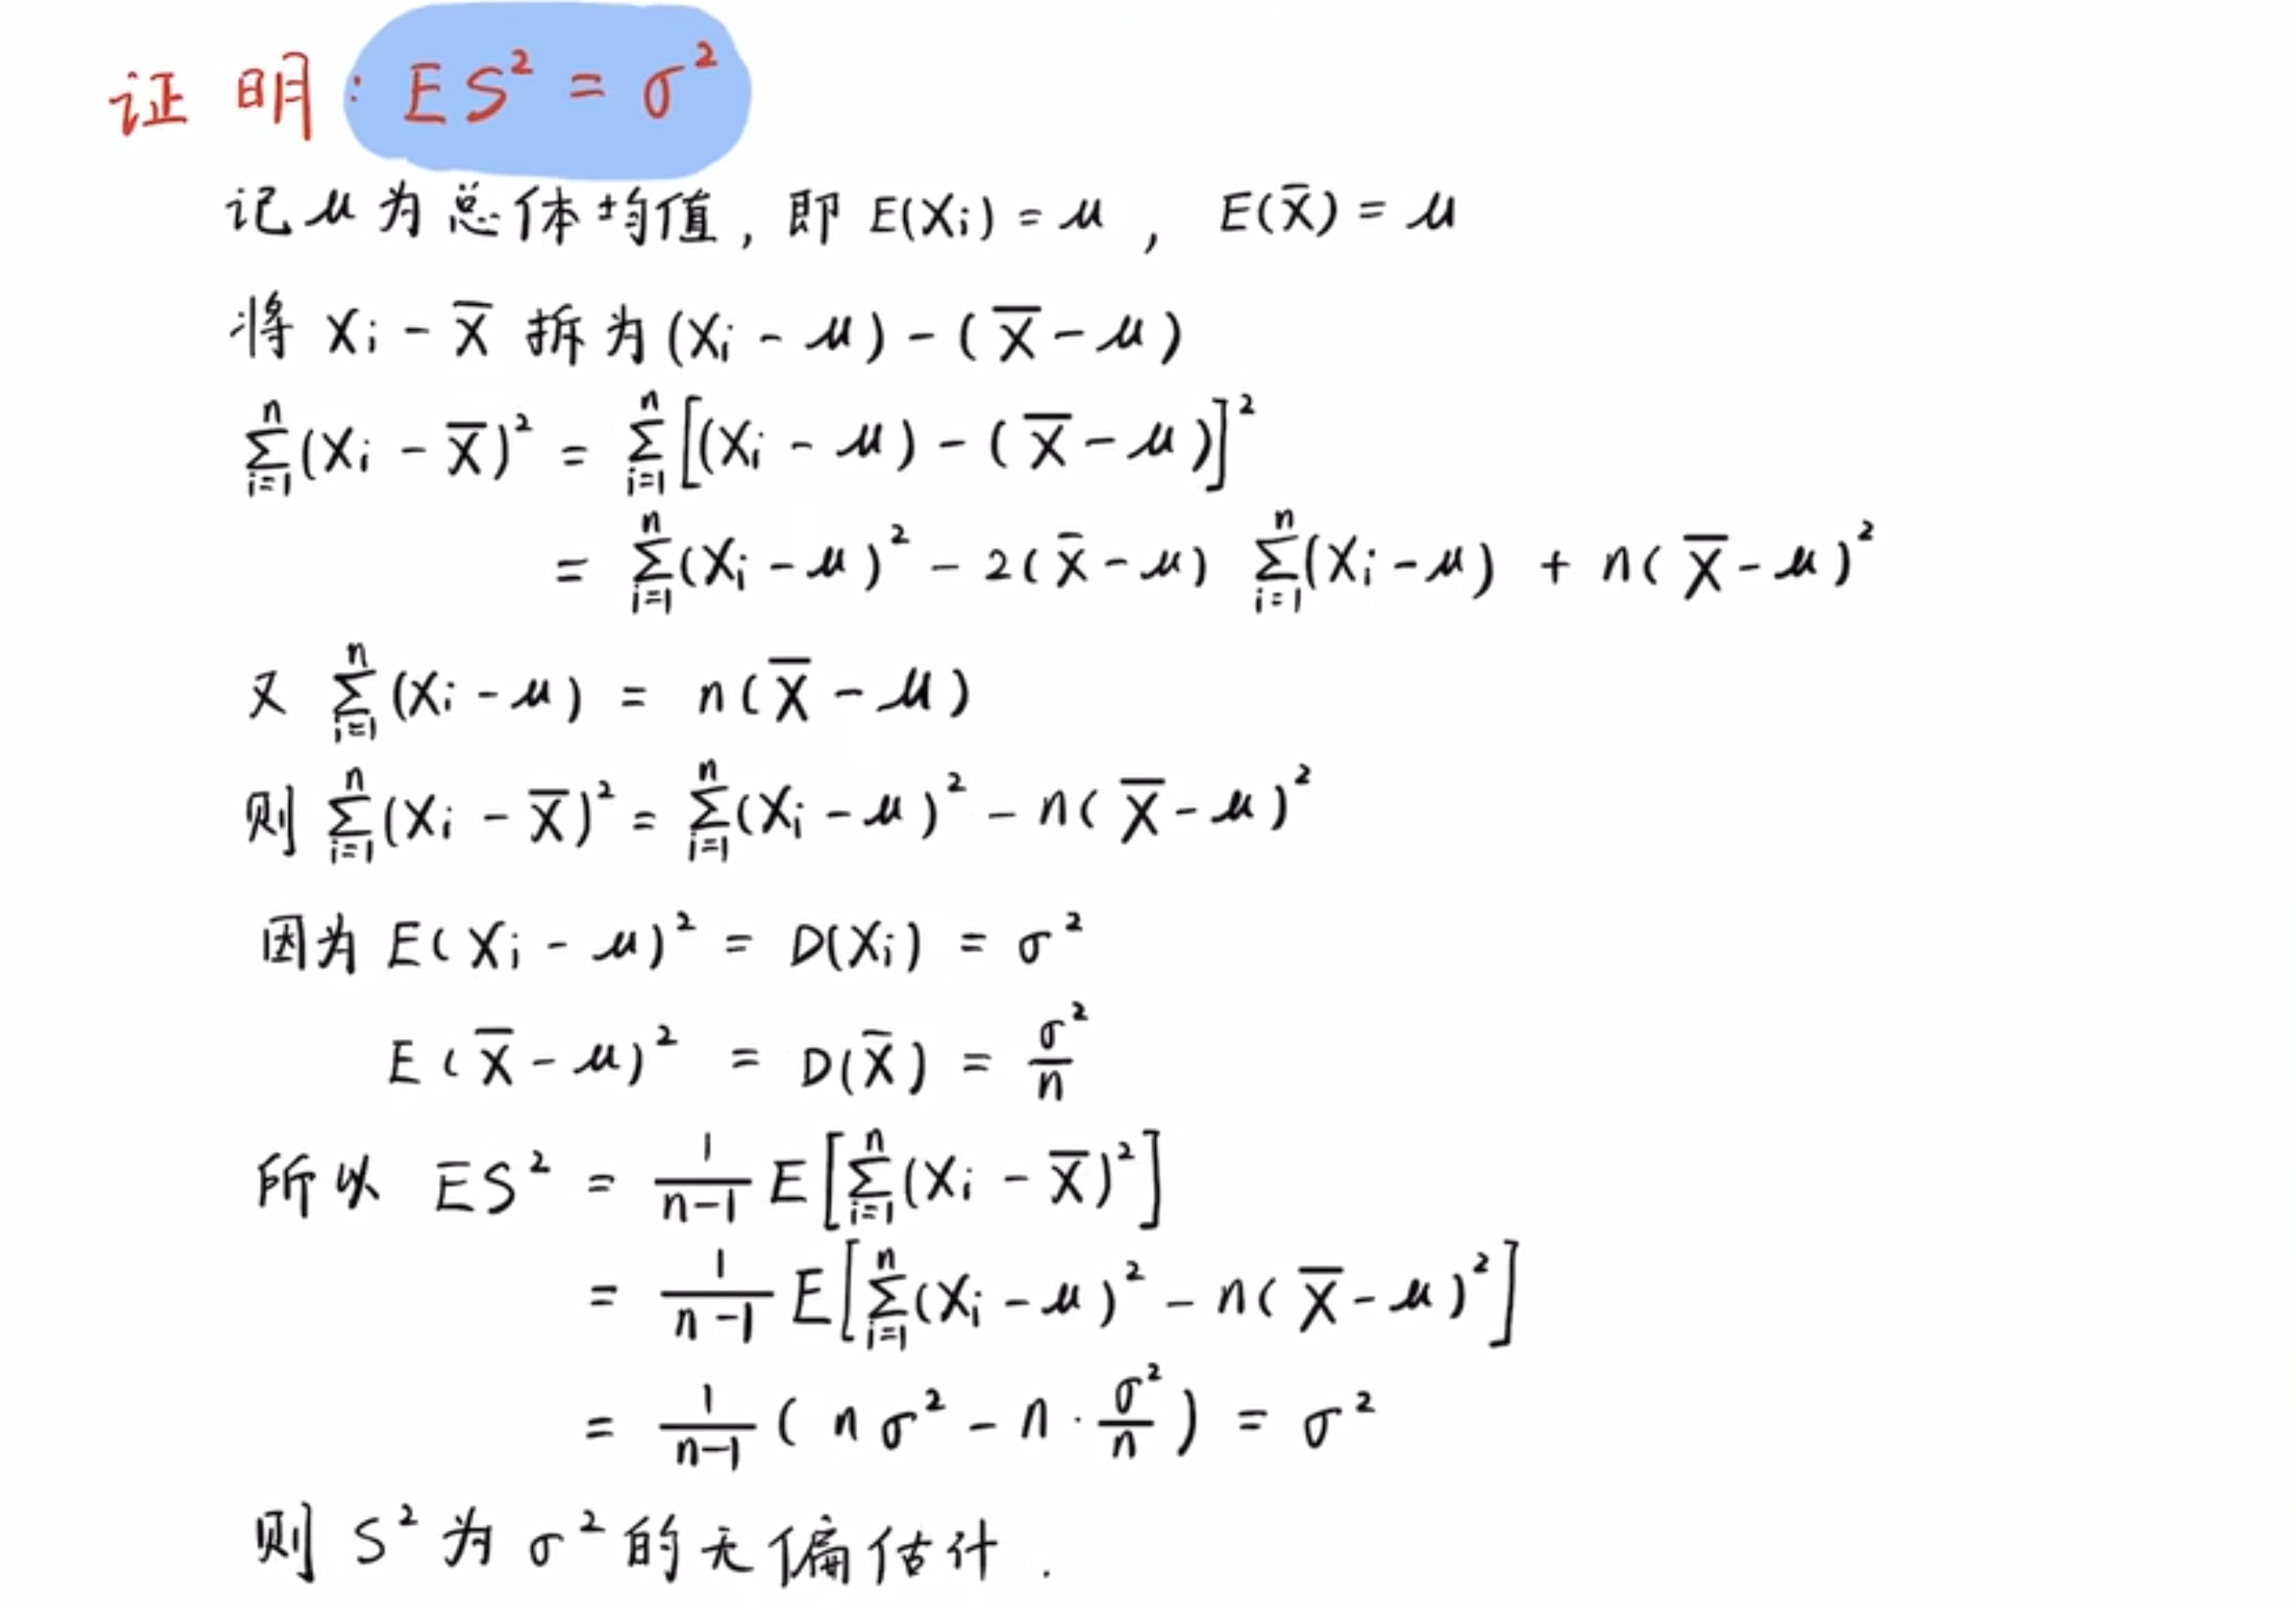 证明: ES² = σ²
记 μ 为总体均值, 即 E(Xᵢ) = μ , E(X̄) = μ
将 Xᵢ - X̄ 拆为 (Xᵢ - μ) - (X̄ - μ)
∑ᵢ₌₁ⁿ (Xᵢ - X̄)² = ∑ᵢ₌₁ⁿ [(Xᵢ - μ) - (X̄ - μ)]²
= ∑ᵢ₌₁ⁿ (Xᵢ - μ)² - 2(X̄ - μ) ∑ᵢ₌₁ⁿ (Xᵢ - μ) + n(X̄ - μ)²
又 ∑ᵢ₌₁ⁿ (Xᵢ - μ) = n(X̄ - μ)
则 ∑ᵢ₌₁ⁿ (Xᵢ - X̄)² = ∑ᵢ₌₁ⁿ (Xᵢ - μ)² - n(X̄ - μ)²
因为 E(Xᵢ - μ)² = D(Xᵢ) = σ²
E(X̄ - μ)² = D(X̄) = σ²/n
所以 ES² = 1/(n-1) E[∑ᵢ₌₁ⁿ (Xᵢ - X̄)²]
= 1/(n-1) E[∑ᵢ₌₁ⁿ (Xᵢ - μ)² - n(X̄ - μ)²]
= 1/(n-1) (nσ² - n · σ²/n) = σ²
则 S² 为 σ² 的无偏估计.